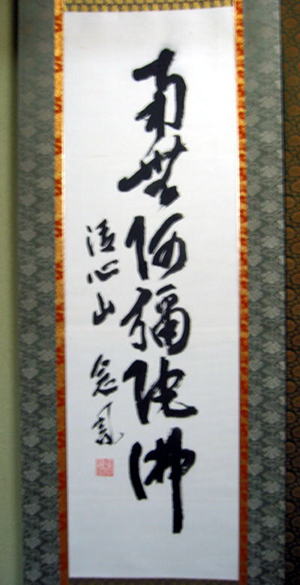 南無阿彌陀佛
清心山